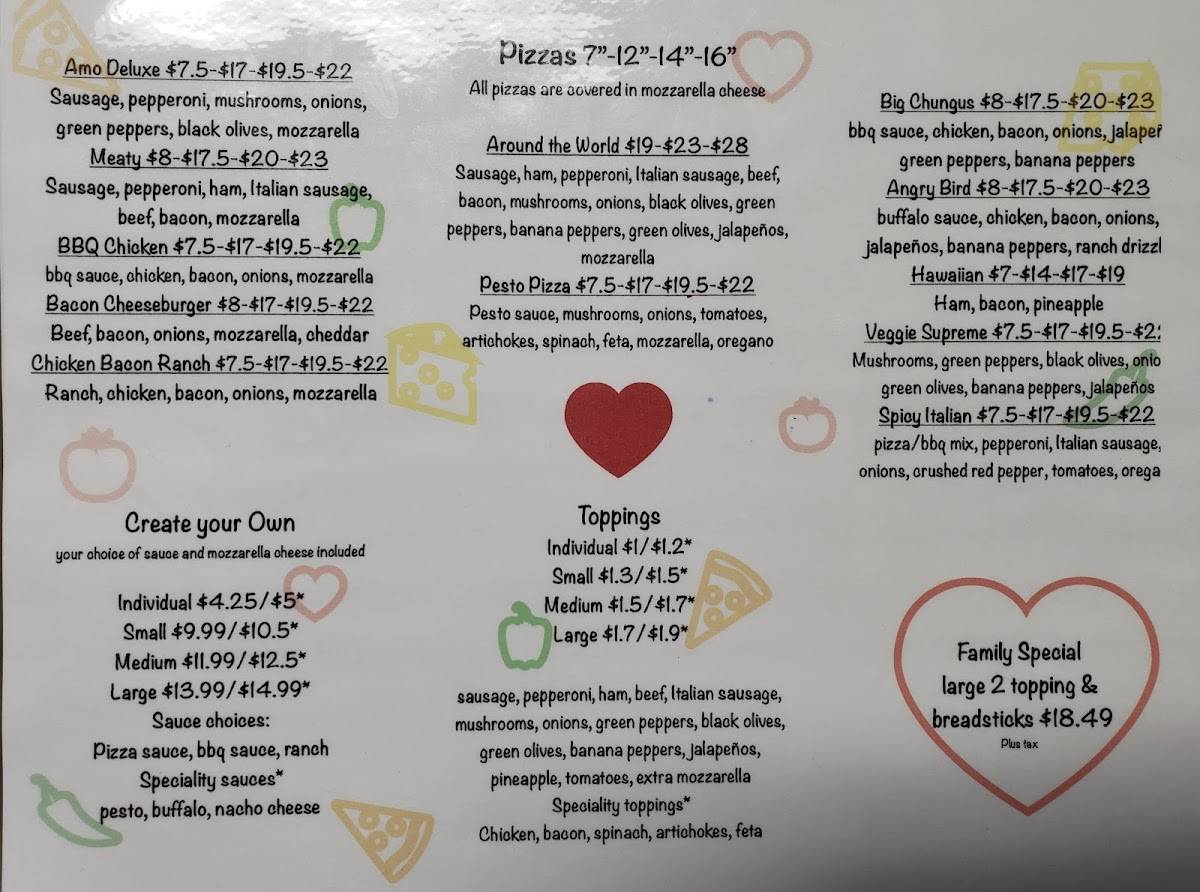 Amo Deluxe $7.5-$17-$19.5-$22
Sausage, pepperoni, mushrooms, onions,
green peppers, black olives, mozzarella
Meaty $8-$17.5-$20-$23
Sausage, pepperoni, ham, Italian sausage,
beef, bacon, mozzarella
BBQ Chicken $7.5-$17-$19.5-$22
bbq sauce, chicken, bacon, onions, mozzarella
Bacon Cheeseburger $8-$17-$19.5-$22
Beef, bacon, onions, mozzarella, cheddar
Chicken Bacon Ranch $7.5-$17-$19.5-$22
Ranch, chicken, bacon, onions, mozzarella
Pizzas 7”-12”-14”-16”
All pizzas are covered in mozzarella cheese
Around the World $19-$23-$28
Sausage, ham, pepperoni, Italian sausage, beef,
bacon, mushrooms, onions, black olives, green
peppers, banana peppers, green olives, jalapeños,
mozzarella
Pesto Pizza $7.5-$17-$19.5-$22
Pesto sauce, mushrooms, onions, tomatoes,
artichokes, spinach, feta, mozzarella, oregano
Big Chungus $8-$17.5-$20-$23
bbq sauce, chicken, bacon, onions,
green peppers, banana peppers
Angry Bird $8-$17.5-$20-$23
buffalo sauce, chicken, bacon, onions,
jalapeños, banana peppers, ranch
Hawaiian $7-$14-$17-$19
Ham, bacon, pineapple
Veggie Supreme $7.5-$17-$19.5-
Mushrooms, green peppers, black olives,
green olives, banana peppers, jalapeños
Spicy Italian $7.5-$17-$19.5-$22
pizza/bbq mix, pepperoni, Italian sausage,
onions, crushed red pepper, tomatoes,
Create your Own
your choice of sauce and mozzarella cheese included
Individual $4.25/$5*
Small $9.99/$10.5*
Medium $11.99/$12.5*
Large $13.99/$14.99*
Sauce choices:
Pizza sauce, bbq sauce, ranch
Speciality sauces*
pesto, buffalo, nacho cheese
Toppings
Individual $1/$1.2*
Small $1.3/$1.5*
Medium $1.5/$1.7*
Large $1.7/$1.9*
sausage, pepperoni, ham, beef, Italian sausage,
mushrooms, onions, green peppers, black olives,
green olives, banana peppers, jalapeños,
pineapple, tomatoes, extra mozzarella
Speciality toppings*
Chicken, bacon, spinach, artichokes, feta
Family Special
large 2 topping &
breadsticks $18.49
Plus tax